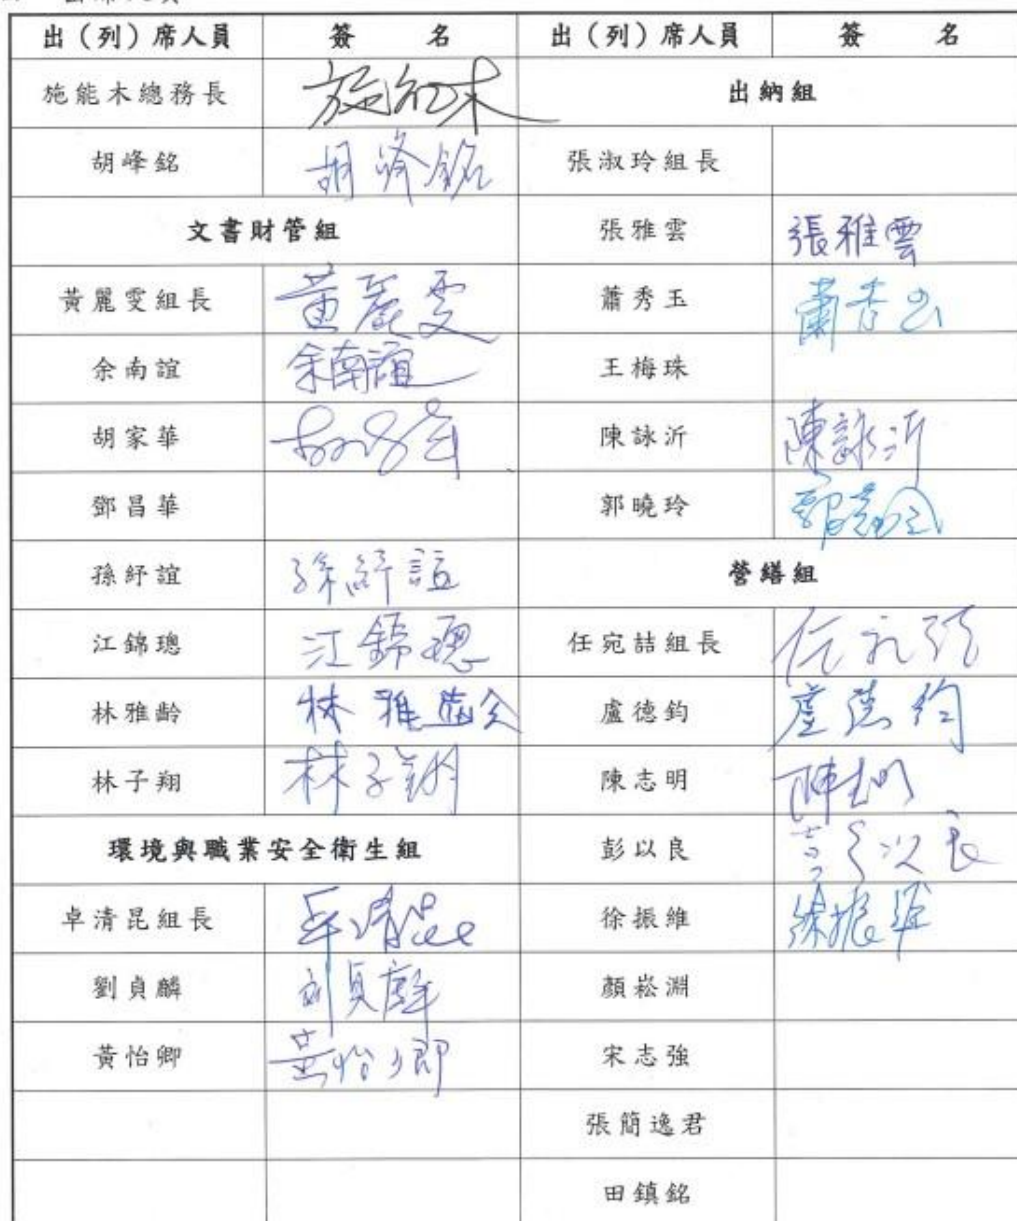 出（列）席人員 簽 名 出（列）席人員 簽 名
施能木總務長 施能木 出納組
胡峰銘 胡峰銘 張淑玲組長
文書財管組 張雅雲 張雅雲
黃麗雯組長 黃麗雯 蕭秀玉 蕭秀玉
余南誼 余南誼 王梅珠
胡家華 胡家華 陳詠沂 陳詠沂
鄧昌華 郭曉玲 郭曉玲
孫紓誼 孫紓誼 營繕組
江錦璁 江錦璁 任宛詰組長
林雅齡 林雅齡 盧德鈞 盧德鈞
林子翔 林子翔 陳志明 陳志明
環境與職業安全衛生組 彭以良 彭以良
卓清昆組長 卓清昆 徐振維 徐振維
劉貞麟 刘貞麟 顏崧淵
黃怡卿 黃怡卿 宋志強
張簡逸君
田鎮銘